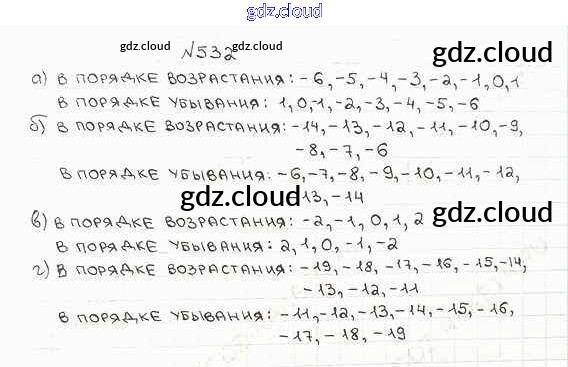 gdz.cloud
№532
gdz.cloud
gdz.cloud
а) В ПОРЯДКЕ ВОЗРАСТАНИЯ: -6,-5,-4,-3,-2,-1,0,1
В ПОРЯДКЕ УБЫВАНИЯ: 1,0,-1,-2,-3,-4,-5,-6
б) В ПОРЯДКЕ ВОЗРАСТАНИЯ: -14,-13,-12,-11,-10,-9,
-8,-7,-6
В ПОРЯДКЕ УБЫВАНИЯ: -6,-7,-8,-9,-10,-11,-12,
-13,-14
gdz.cloud
gdz.cloud
в) В ПОРЯДКЕ ВОЗРАСТАНИЯ: -2,-1,0,1,2
В ПОРЯДКЕ УБЫВАНИЯ: 2,1,0,-1,-2
г) В ПОРЯДКЕ ВОЗРАСТАНИЯ: -19,-18,-17,-16,-15,-14,
-13,-12,-11
В ПОРЯДКЕ УБЫВАНИЯ: -11,-12,-13,-14,-15,-16,
-17,-18,-19